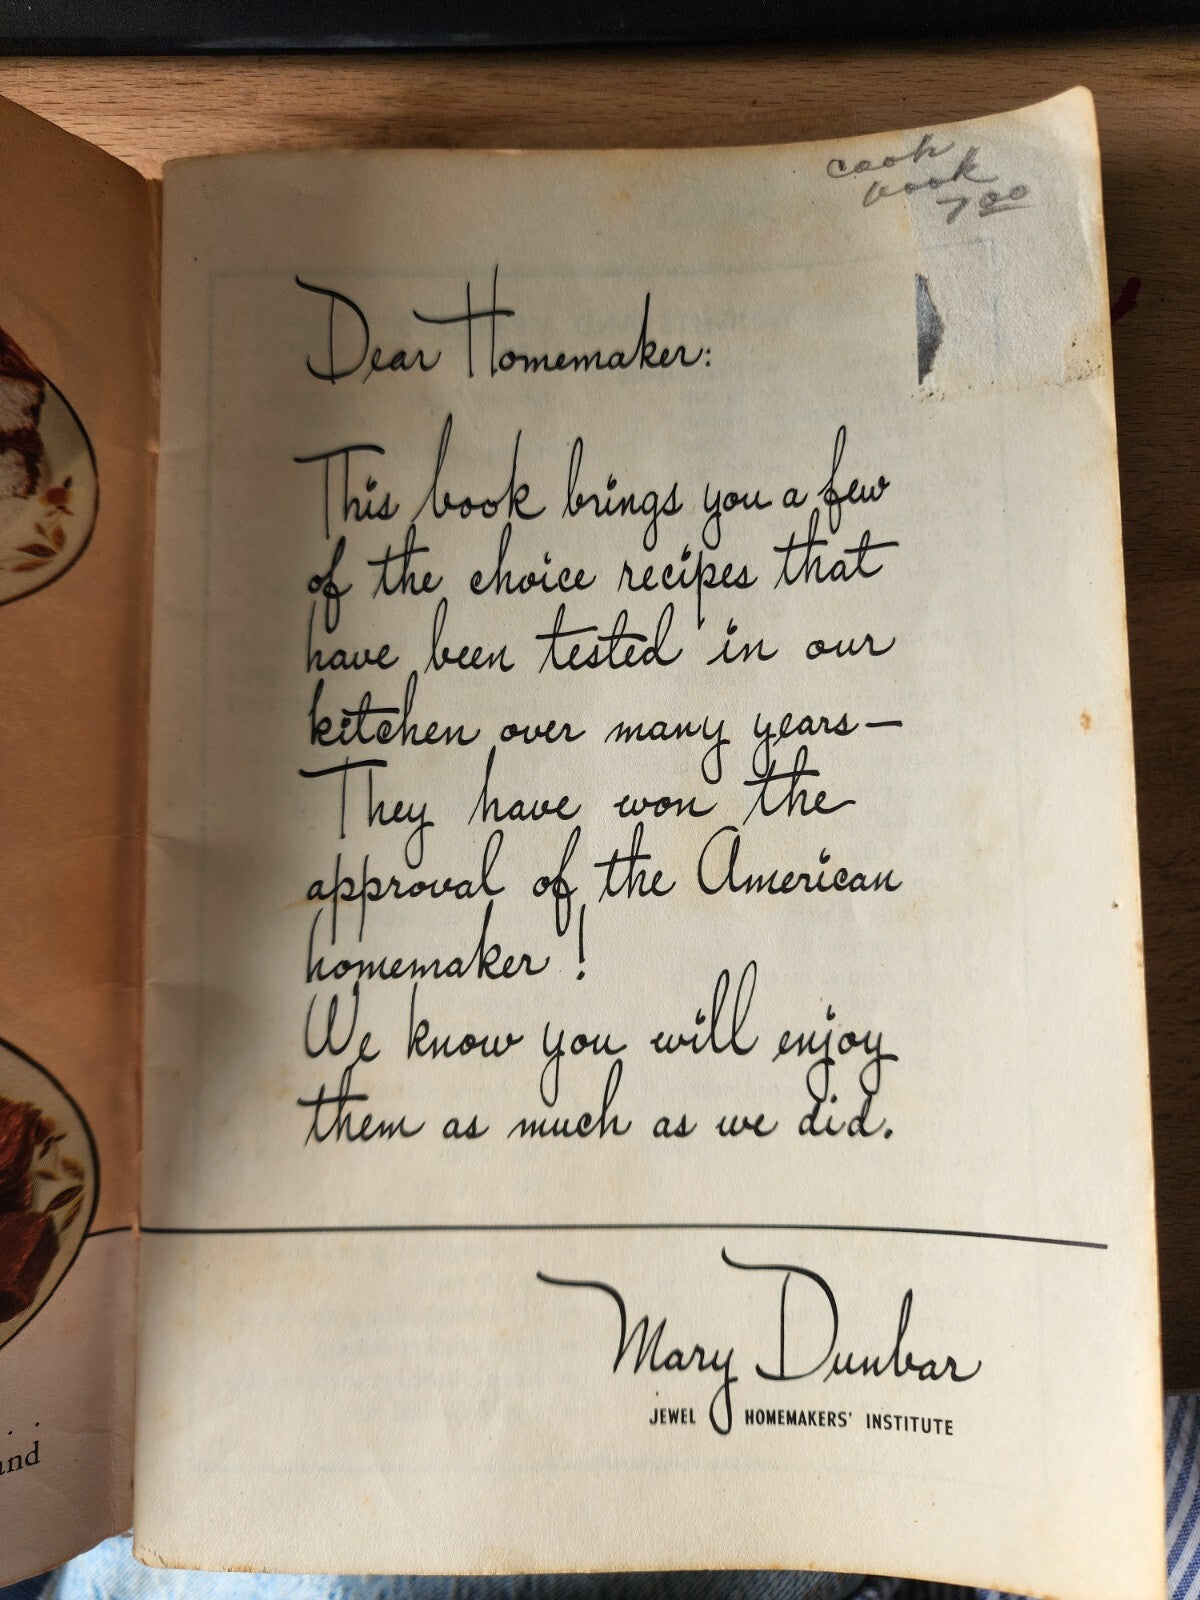 cook
book
7 00
Dear Homemaker:
This book brings you a few
of the choice recipes that
have been tested in our
kitchen over many years—
They have won the
approval of the American
homemaker!
We know you will enjoy
them as much as we did.
Mary Dunbar
JEWEL HOMEMAKERS' INSTITUTE
and